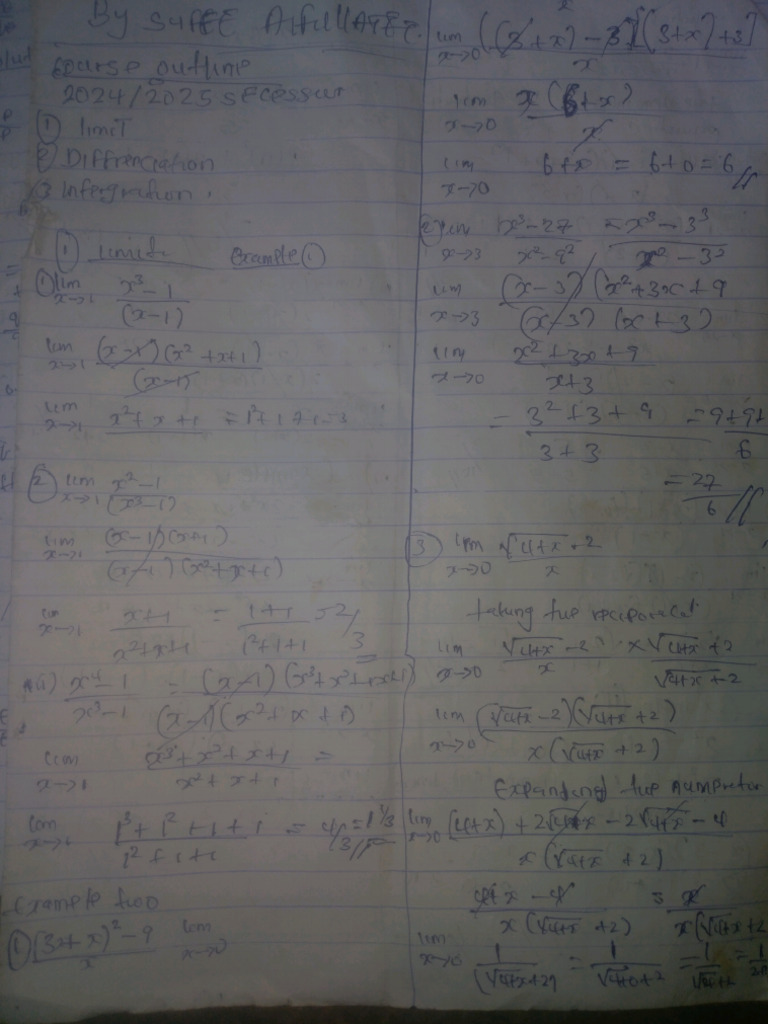 By
course outline
2024/2025 secessur
① limit
② Diffrenciation
③ Intergration.
① limits Example ①
① lim x→1 x³-1 / (x-1)
lim x→1 (x-1)(x²+x+1) / (x-1)
lim x→1 x²+x+1 = 1²+1+1=3
② lim x→1 x²-1 / (x³-1)
lim x→1 (x-1)(x+1) / (x-1)(x²+x+1)
lim x→1 x+1 / x²+x+1 = 1+1 / 1²+1+1 = 2/3
x⁴-1 / x³-1 = (x-1)(x³+x²+x+1) / (x-1)(x²+x+1)
lim x→1 x³+x²+x+1 / x²+x+1 =
lim x→1 1³+1²+1+1 / 1²+1+1 = 4/3 = 1 1/3
Example two
① (3+x)²-9 / x lim x→0
lim x→0 ((3+x)-3)[(3+x)+3] / x
lim x→0 x(6+x) / x
lim x→0 6+x = 6+0=6
② lim x→3 x³-27 / x²-9² = x³-3³ / x²-3²
lim x→3 (x-3)(x²+3x+9 / (x-3)(x+3)
lim x→0 x²+3x+9 / x+3
= 3²+3+9 / 3+3 = 9+9+ / 6
= 27/6
③ lim x→0 √4+x-2 / x
taking the reciporical
lim x→0 √4+x-2 / x × √4+x+2 / √4+x-2
lim x→0 (√4+x-2)(√4+x+2) / x(√4+x+2)
Expanding the numretor
lim x→0 (4+x)+2√4+x-2√4+x-4 / x(√4+x+2)
4+x-4 / x(√4+x+2) = x / x(√4+x+2
lim x→0 1 / (√4+x+2) = 1 / √4+0+2 = 1 / √4+2 =